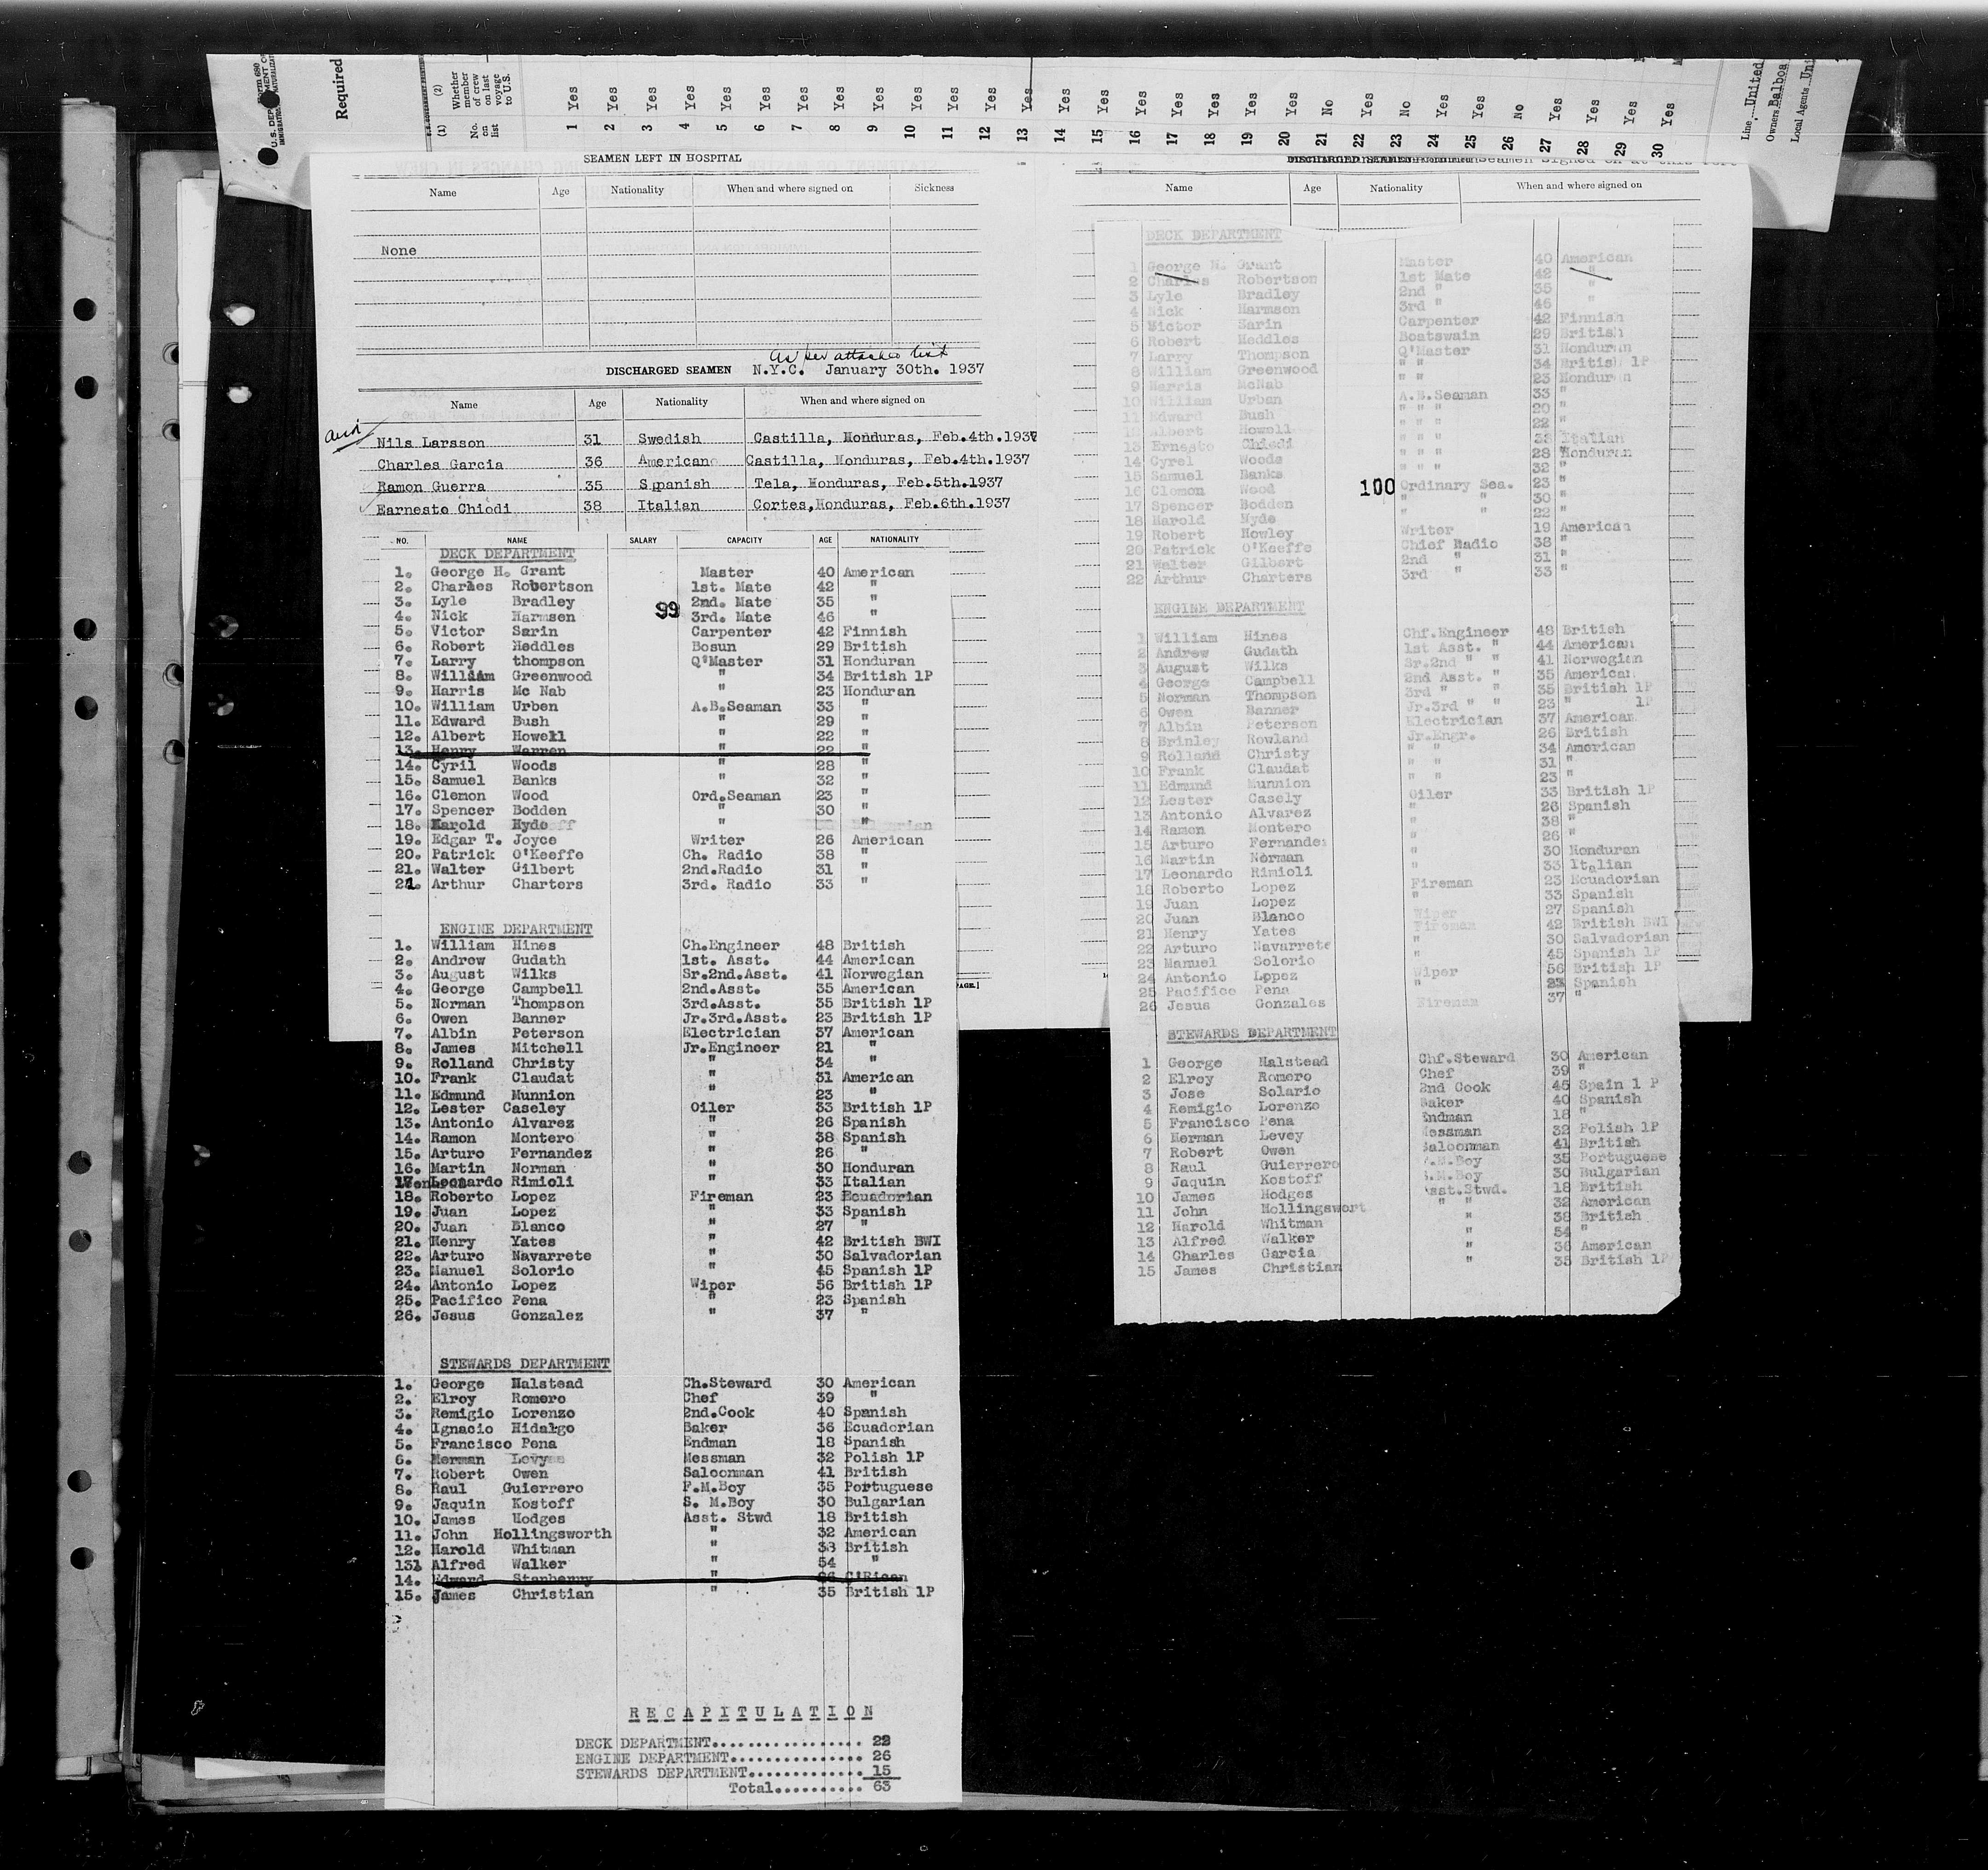 Form 680
U.S. DEPARTMENT OF
Required
(1) (2)
No. on list
Whether member of crew on last voyage to U.S.
1 Yes
2 Yes
3 Yes
4 Yes
5 Yes
6 Yes
7 Yes
8 Yes
9 Yes
10 Yes
11 Yes
12 Yes
13 Yes
14 Yes
15 Yes
16 Yes
17 Yes
18 Yes
19 Yes
20 Yes
21 No
22 Yes
23 No
24 Yes
25 Yes
26 No
27 Yes
28 Yes
29 Yes
30 Yes
Line, United
Owners Balboa
Local Agents Uni
SEAMEN LEFT IN HOSPITAL
Name Age Nationality When and where signed on Sickness
None
As per attached list
DISCHARGED SEAMEN N.Y.C. January 30th. 1937
Name Age Nationality When and where signed on
and
Nils Larsson 31 Swedish Castilla, Honduras, Feb.4th.1937
Charles Garcia 36 American Castilla, Honduras, Feb.4th.1937
Ramon Guerra 35 Spanish Tela, Honduras, Feb.5th.1937
Earnesto Chiodi 38 Italian Cortes,Honduras, Feb.6th.1937
NO. NAME SALARY CAPACITY AGE NATIONALITY
DECK DEPARTMENT
1. George H. Grant Master 40 American
2. Charles Robertson 1st. Mate 42 "
3. Lyle Bradley 2nd. Mate 35 "
99
4. Nick Harmsen 3rd. Mate 46 "
5. Victor Sarin Carpenter 42 Finnish
6. Robert Heddles Bosun 29 British
7. Larry thompson Q'Master 31 Honduran
8. William Greenwood " 34 British 1P
9. Harris Mc Nab " 23 Honduran
10. William Urben A.B.Seaman 33 "
11. Edward Bush " 29 "
12. Albert Howell " 22 "
13. Henry Warren " 22 "
14. Cyril Woods " 28 "
15. Samuel Banks " 32 "
16. Clemon Wood Ord.Seaman 23 "
17. Spencer Bodden " 30 "
18. Harold Hyde " "
19. Edgar T. Joyce Writer 26 American
20. Patrick O'Keeffe Ch. Radio 38 "
21. Walter Gilbert 2nd.Radio 31 "
21. Arthur Charters 3rd. Radio 33 "
ENGINE DEPARTMENT
1. William Hines Ch.Engineer 48 British
2. Andrew Gudath 1st. Asst. 44 American
3. August Wilks Sr.2nd.Asst. 41 Norwegian
4. George Campbell 2nd.Asst. 35 American
5. Norman Thompson 3rd.Asst. 35 British 1P
6. Owen Banner Jr.3rd.Asst. 23 British 1P
7. Albin Peterson Electrician 37 American
8. James Mitchell Jr.Engineer 21 "
9. Rolland Christy " 34 "
10. Frank Claudat " 31 American
11. Edmund Munnion " 23 "
12. Lester Caseley Oiler 33 British 1P
13. Antonio Alvarez " 26 Spanish
14. Ramon Montero " 38 Spanish
15. Arturo Fernandez " 26 "
16. Martin Norman " 30 Honduran
17. Leonardo Rimioli " 33 Italian
18. Roberto Lopez Fireman 23 Ecuadorian
19. Juan Lopez " 33 Spanish
20. Juan Blanco " 27 "
21. Henry Yates " 42 British BWI
22. Arturo Navarrete " 30 Salvadorian
23. Manuel Solorio " 45 Spanish 1P
24. Antonio Lopez Wiper 56 British 1P
25. Pacifico Pena " 23 Spanish
26. Jesus Gonzalez " 37 "
STEWARDS DEPARTMENT
1. George Halstead Ch.Steward 30 American
2. Elroy Romero Chef 39 "
3. Remigio Lorenzo 2nd.Cook 40 Spanish
4. Ignacio Hidalgo Baker 36 Ecuadorian
5. Francisco Pena Endman 18 Spanish
6. Herman Levy Messman 32 Polish 1P
7. Robert Owen Saloonman 41 British
8. Raul Guierrero P.M.Boy 35 Portuguese
9. Jaquin Kostoff S. M.Boy 30 Bulgarian
10. James Hodges Asst. Stwd 18 British
11. John Hollingsworth " 32 American
12. Harold Whitman " 38 British
131 Alfred Walker " 54 "
14. Edward Stanberry " 26 C'Rican
15. James Christian " 35 British 1P
RECAPITULATION
DECK DEPARTMENT................. 22
ENGINE DEPARTMENT............... 26
STEWARDS DEPARTMENT............. 15
Total.......... 63
DISCHARGED SEAMEN Seamen signed on at this Port
Name Age Nationality When and where signed on
DECK DEPARTMENT
1 George H. Grant Master 40 American
2 Charles Robertson 1st Mate 42 "
3 Lyle Bradley 2nd " 35 "
4 Nick Harmson 3rd " 46 "
5 Victor Sarin Carpenter 42 Finnish
6 Robert Heddles Boatswain 29 British
7 Larry Thompson Q'Master 31 Honduran
8 William Greenwood " " 34 British 1P
9 Harris McNab " " 23 Honduran
10 William Urban A.B.Seaman 33 "
11 Edward Bush " " " 20 "
12 Albert Howell " " " 22 "
13 Ernesto Chiodi " " " 38 Italian
14 Cyrel Woods " " " 28 Honduran
15 Samuel Banks " " " 32 "
100
16 Clemon Wood Ordinary Sea. 23 "
17 Spencer Bodden " " 30 "
18 Harold Hyde " " 22 "
19 Robert Howley Writer 19 American
20 Patrick O'Keeffe Chief Radio 38 "
21 Walter Gilbert 2nd " 31 "
22 Arthur Charters 3rd " 33 "
ENGINE DEPARTMENT
1 William Hines Chf.Engineer 48 British
2 Andrew Gudath 1st Asst. " 44 American
3 August Wilks Sr.2nd " " 41 Norwegian
4 George Campbell 2nd Asst. " 35 American
5 Norman Thompson 3rd " " 35 British 1P
6 Owen Banner Jr.3rd " " 23 " 1P
7 Albin Peterson Electrician 37 American
8 Brinley Rowland Jr.Engr. 26 British
9 Rolland Christy " " 34 American
10 Frank Claudat " " 31 "
11 Edmund Munnion " " 23 "
12 Lester Casely Oiler 33 British 1P
13 Antonio Alvarez " 26 Spanish
14 Ramon Montero " 38 "
15 Arturo Fernandez " 26 "
16 Martin Norman " 30 Honduran
17 Leonardo Rimioli " 33 Italian
18 Roberto Lopez Fireman 23 Ecuadorian
19 Juan Lopez " 33 Spanish
20 Juan Blanco Wiper 27 Spanish
21 Henry Yates Fireman 42 British BWI
22 Arturo Navarrete " 30 Salvadorian
23 Manuel Solorio " 45 Spanish 1P
24 Antonio Lopez Wiper 56 British 1P
25 Pacifico Pena " 23 Spanish
26 Jesus Gonzales Fireman 37 "
STEWARDS DEPARTMENT
1 George Halstead Chf.Steward 30 American
2 Elroy Romero Chef 39 "
3 Jose Solario 2nd Cook 45 Spain 1 P
4 Remigio Lorenzo Baker 40 Spanish
5 Francisco Pena Endman 18 "
6 Herman Levey Messman 32 Polish 1P
7 Robert Owen Saloonman 41 British
8 Raul Guierrero P.M.Boy 35 Portuguese
9 Jaquin Kostoff S.M.Boy 30 Bulgarian
10 James Hodges Asst.Stwd. 18 British
11 John Hollingswort " " 32 American
12 Harold Whitman " 38 British
13 Alfred Walker " 54 "
14 Charles Garcia " 36 American
15 James Christian " 35 British 1P
PAGE.]